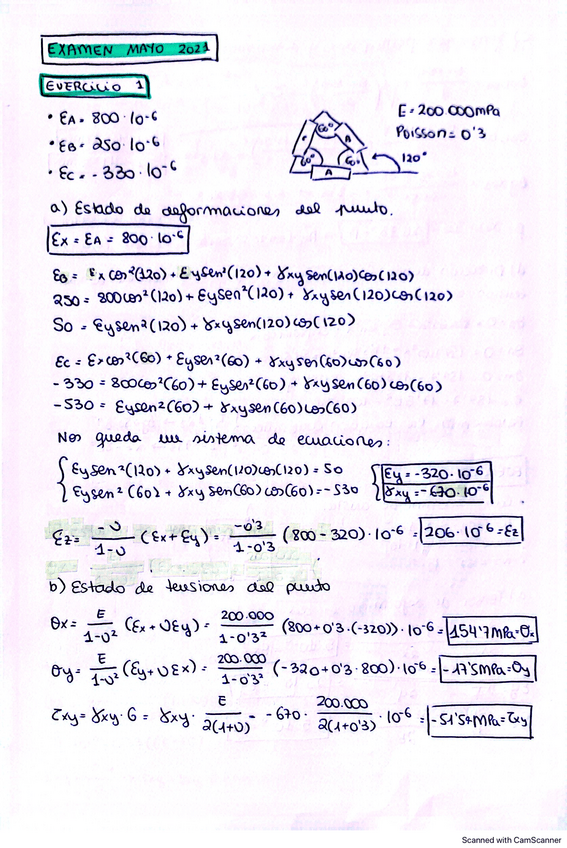 EXAMEN MAYO 2021
EJERCICIO 1
• εA = 800·10-6
• εB = 250·10-6
• εC = -330·10-6
60º
A
60º
60º
A
120º
E = 200.000mPa
Poisson = 0'3
a) Estado de deformaciones del punto.
εx = εA = 800·10-6
εB = εx cos²(120) + εy sen²(120) + γxy sen(120) cos(120)
250 = 800cos²(120) + εy sen²(120) + γxy sen(120) cos(120)
50 = εy sen²(120) + γxy sen(120) cos(120)
εc = εx cos²(60) + εy sen²(60) + γxy sen(60) cos(60)
-330 = 800cos²(60) + εy sen²(60) + γxy sen(60) cos(60)
-530 = εy sen²(60) + γxy sen(60) cos(60)
Nos queda un sistema de ecuaciones:
{ εy sen²(120) + γxy sen(120) cos(120) = 50 { εy = -320·10-6
εy sen²(60) + γxy sen(60) cos(60) = -530 γxy = -670·10-6
εz = -υ/1-υ (εx + εy) = -0'3/1-0'3 (800-320)·10-6 = 206·10-6 = εz
b) Estado de tensiones del punto
σx = E/1-υ² (εx + υεy) = 200.000/1-0'3² (800+0'3·(-320))·10-6 = 154'7mPa = σx
σy = E/1-υ² (εy + υεx) = 200.000/1-0'3² (-320+0'3·800)·10-6 = -17'5mPa = σy
τxy = γxy·G = γxy· E/2(1+υ) = -670· 200.000/2(1+0'3) ·10-6 = -51'54mPa = τxy
Scanned with CamScanner